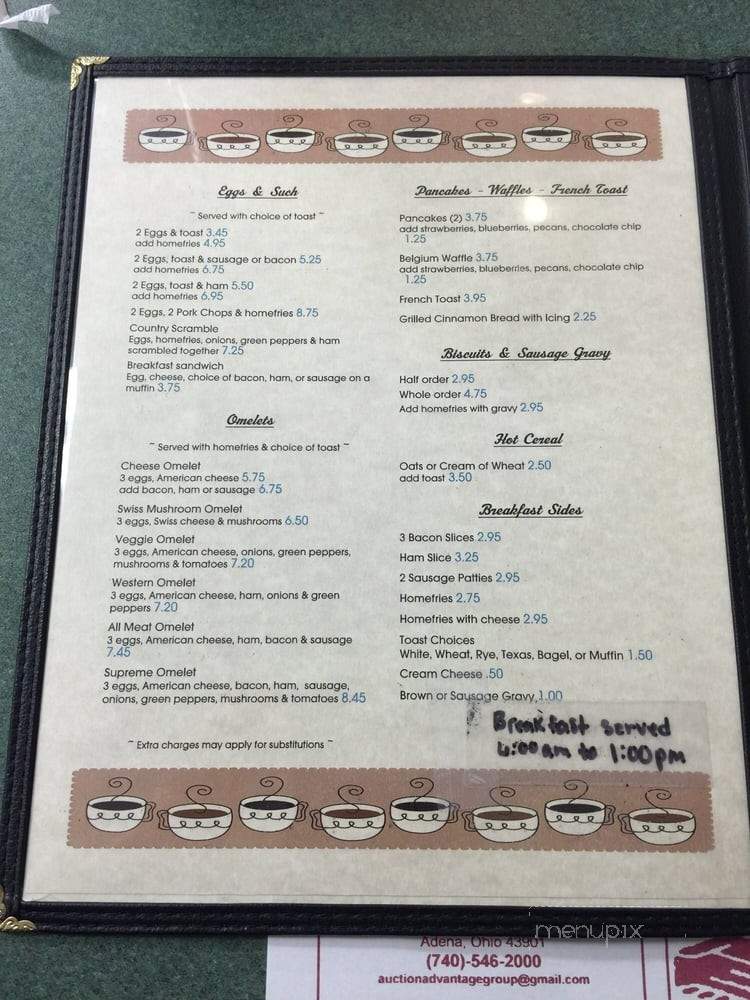 Eggs & Such
~ Served with choice of toast ~
2 Eggs & toast 3.45
add homefries 4.95
2 Eggs, toast & sausage or bacon 5.25
add homefries 6.75
2 Eggs, toast & ham 5.50
add homefries 6.95
2 Eggs, 2 Pork Chops & homefries 8.75
Country Scramble
Eggs, homefries, onions, green peppers & ham
scrambled together 7.25
Breakfast sandwich
Egg, cheese, choice of bacon, ham, or sausage on a
muffin 3.75
Omelets
~ Served with homefries & choice of toast ~
Cheese Omelet
3 eggs, American cheese 5.75
add bacon, ham or sausage 6.75
Swiss Mushroom Omelet
3 eggs, Swiss cheese & mushrooms 6.50
Veggie Omelet
3 eggs, American cheese, onions, green peppers,
mushrooms & tomatoes 7.20
Western Omelet
3 eggs, American cheese, ham, onions & green
peppers 7.20
All Meat Omelet
3 eggs, American cheese, ham, bacon & sausage
7.45
Supreme Omelet
3 eggs, American cheese, bacon, ham, sausage,
onions, green peppers, mushrooms & tomatoes 8.45
~ Extra charges may apply for substitutions ~
Pancakes - Waffles - French Toast
Pancakes (2) 3.75
add strawberries, blueberries, pecans, chocolate chip
1.25
Belgium Waffle 3.75
add strawberries, blueberries, pecans, chocolate chip
1.25
French Toast 3.95
Grilled Cinnamon Bread with Icing 2.25
Biscuits & Sausage Gravy
Half order 2.95
Whole order 4.75
Add homefries with gravy 2.95
Hot Cereal
Oats or Cream of Wheat 2.50
add toast 3.50
Breakfast Sides
3 Bacon Slices 2.95
Ham Slice 3.25
2 Sausage Patties 2.95
Homefries 2.75
Homefries with cheese 2.95
Toast Choices
White, Wheat, Rye, Texas, Bagel, or Muffin 1.50
Cream Cheese .50
Brown or Sausage Gravy 1.00
Breakfast served
6:00am to 1:00pm
menupix
Adena, Ohio 43901
(740)-546-2000
auctionadvantagegroup@gmail.com